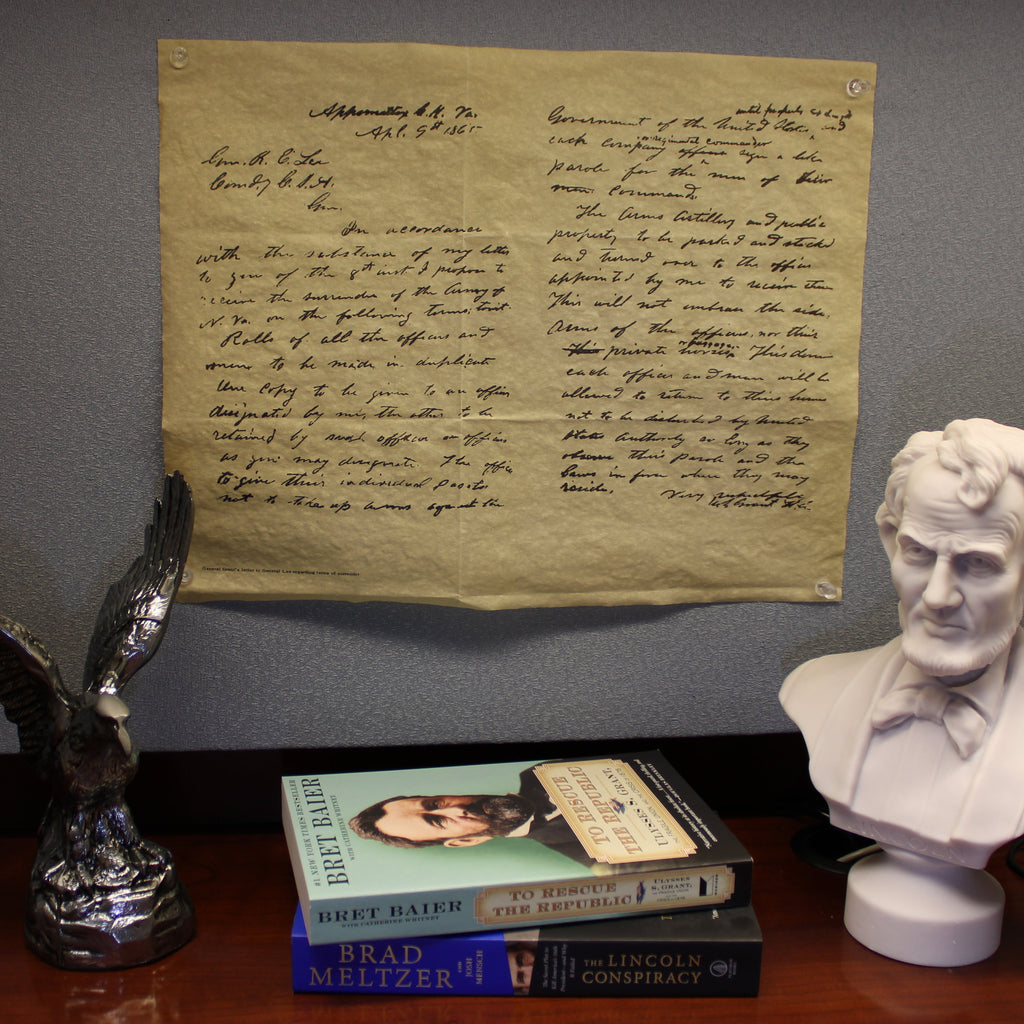 Appomattox C. H. Va.
Apl. 9th 1865
Gen. R. E. Lee
Comd'g C. S. A.
Gen.
In accordance
with the substance of my letter
to you of the 8th inst. I propose to
receive the surrender of the Army of
N. Va. on the following terms; towit:
Rolls of all the officers and
men to be made in duplicate
One copy to be given to an officer
designated by me, the other to be
retained by such officer or officers
as you may designate. The officers
to give their individual paroles
not to take up arms against the
until properly exchanged
Government of the United States, and
or regimental commander
each company officer sign a like
parole for the men of their
men commands.
The Arms Artillery and public
property to be parked and stacked
and turned over to the officer
appointed by me to receive them
This will not embrace the side
Arms of the officers, nor their
baggage.
This private horses This done
each officer and man will be
allowed to return to their homes
not to be disturbed by United
States Authority so long as they
observe their parole and the
laws in force where they may
reside.
Very respectfully
U. S. Grant Lt. Gn.
General Grant's letter to General Lee regarding terms of surrender
#1 NEW YORK TIMES BESTSELLER
BRET BAIER
WITH CATHERINE WHITNEY
TO RESCUE
THE REPUBLIC
ULYSSES S. GRANT,
BRET BAIER
WITH CATHERINE WHITNEY
TO RESCUE
THE REPUBLIC
ULYSSES
S. GRANT,
BRAD
MELTZER
AND
JOSH
MENSCH
THE LINCOLN
CONSPIRACY